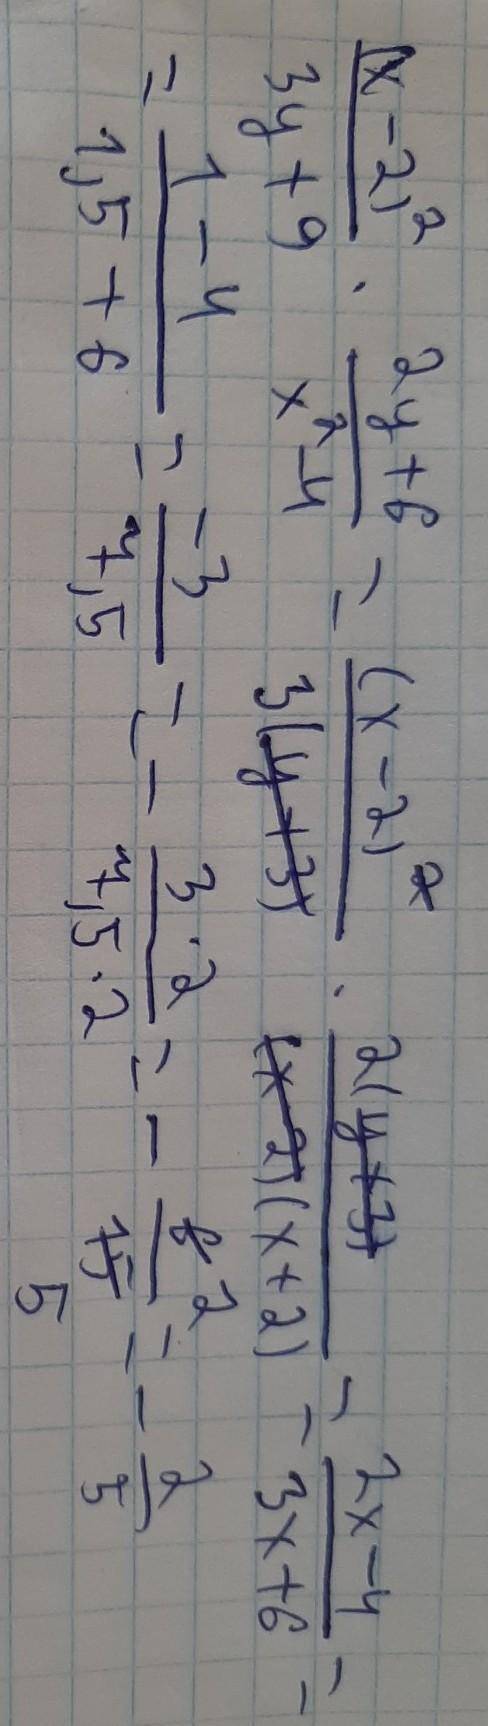 (x-2)²/(3y+9) · (2y+6)/(x²-4) = (x-2)²/(3(y+3)) · 2(y+3)/((x-2)(x+2)) = (2x-4)/(3x+6) =
= (1-4)/(1,5+6) = -3/7,5 = - (3·2)/(7,5·2) = - 6/15 2/5 = - 2/5